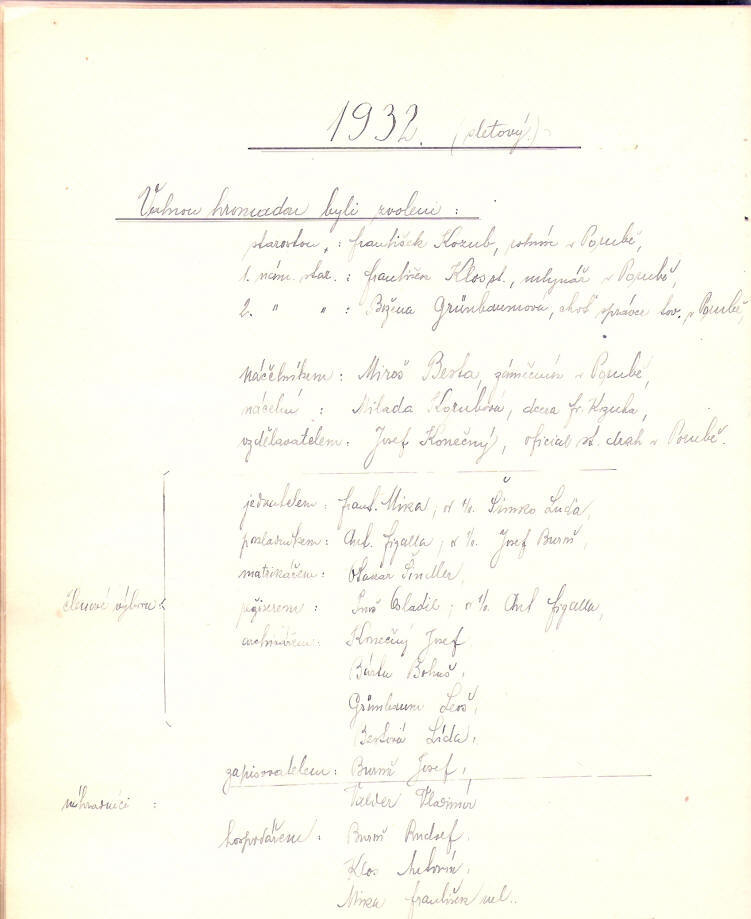 1932. (sletový.)
Valnou hromadou byli zvoleni :
starostou : František Kozub, rolník v Porubě,
1. nám. star. : František Klos st., mlynář v Porubě,
2. " " : Božena Grünbaumová, choť správce tov. v Porubě,
náčelníkem : Miroš Berta, zámečník v Porubě,
náčelní : Milada Kozubová, dcera Fr. Kozuba,
vzdělavatelem : Josef Konečný, oficial st. drah v Porubě.
jednatelem : Frant. Mika, Šimko Luďa,
pokladníkem : Ant. Figalla, Josef Bureš,
matrikářem : Otakar Šindler,
členové výboru
režiserem : Vladil ; Ant. Figalla,
archivářem : Konečný Josef
Bárta Bohuš,
Grünbaum Leoš,
Bertová Lída,
zapisovatelem : Bureš Josef,
náhradníci : Valder Vladimír
hospodářem : Bureš Rudolf.
Klos Antonín,
Mika František ml..